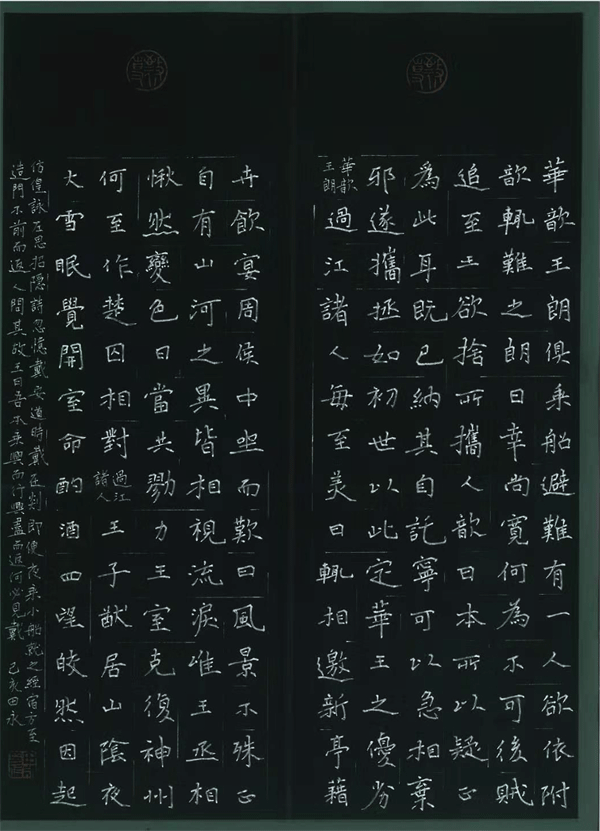 華歆王朗俱乘船避難有一人欲依附
歆輒難之朗曰幸尚寬何為不可後賊
追至王欲捨所攜人歆曰本所以疑正
為此耳既已納其自託寧可以急相棄
邪遂攜拯如初世以此定華王之優劣
華歆王朗過江諸人每至美日輒相邀新亭藉
卉飲宴周侯中坐而歎曰風景不殊正
自有山河之異皆相視流淚唯王丞相
愀然變色曰當共勠力王室克復神州
何至作楚囚相對過江諸人王子猷居山陰夜
大雪眠覺開室命酌酒四望皎然因起
仿偟詠左思招隱詩忽憶戴安道時戴在剡即便夜乘小船就之經宿方至
造門不前而返人問其故王曰吾本乘興而行興盡而返何必見戴 己亥田永